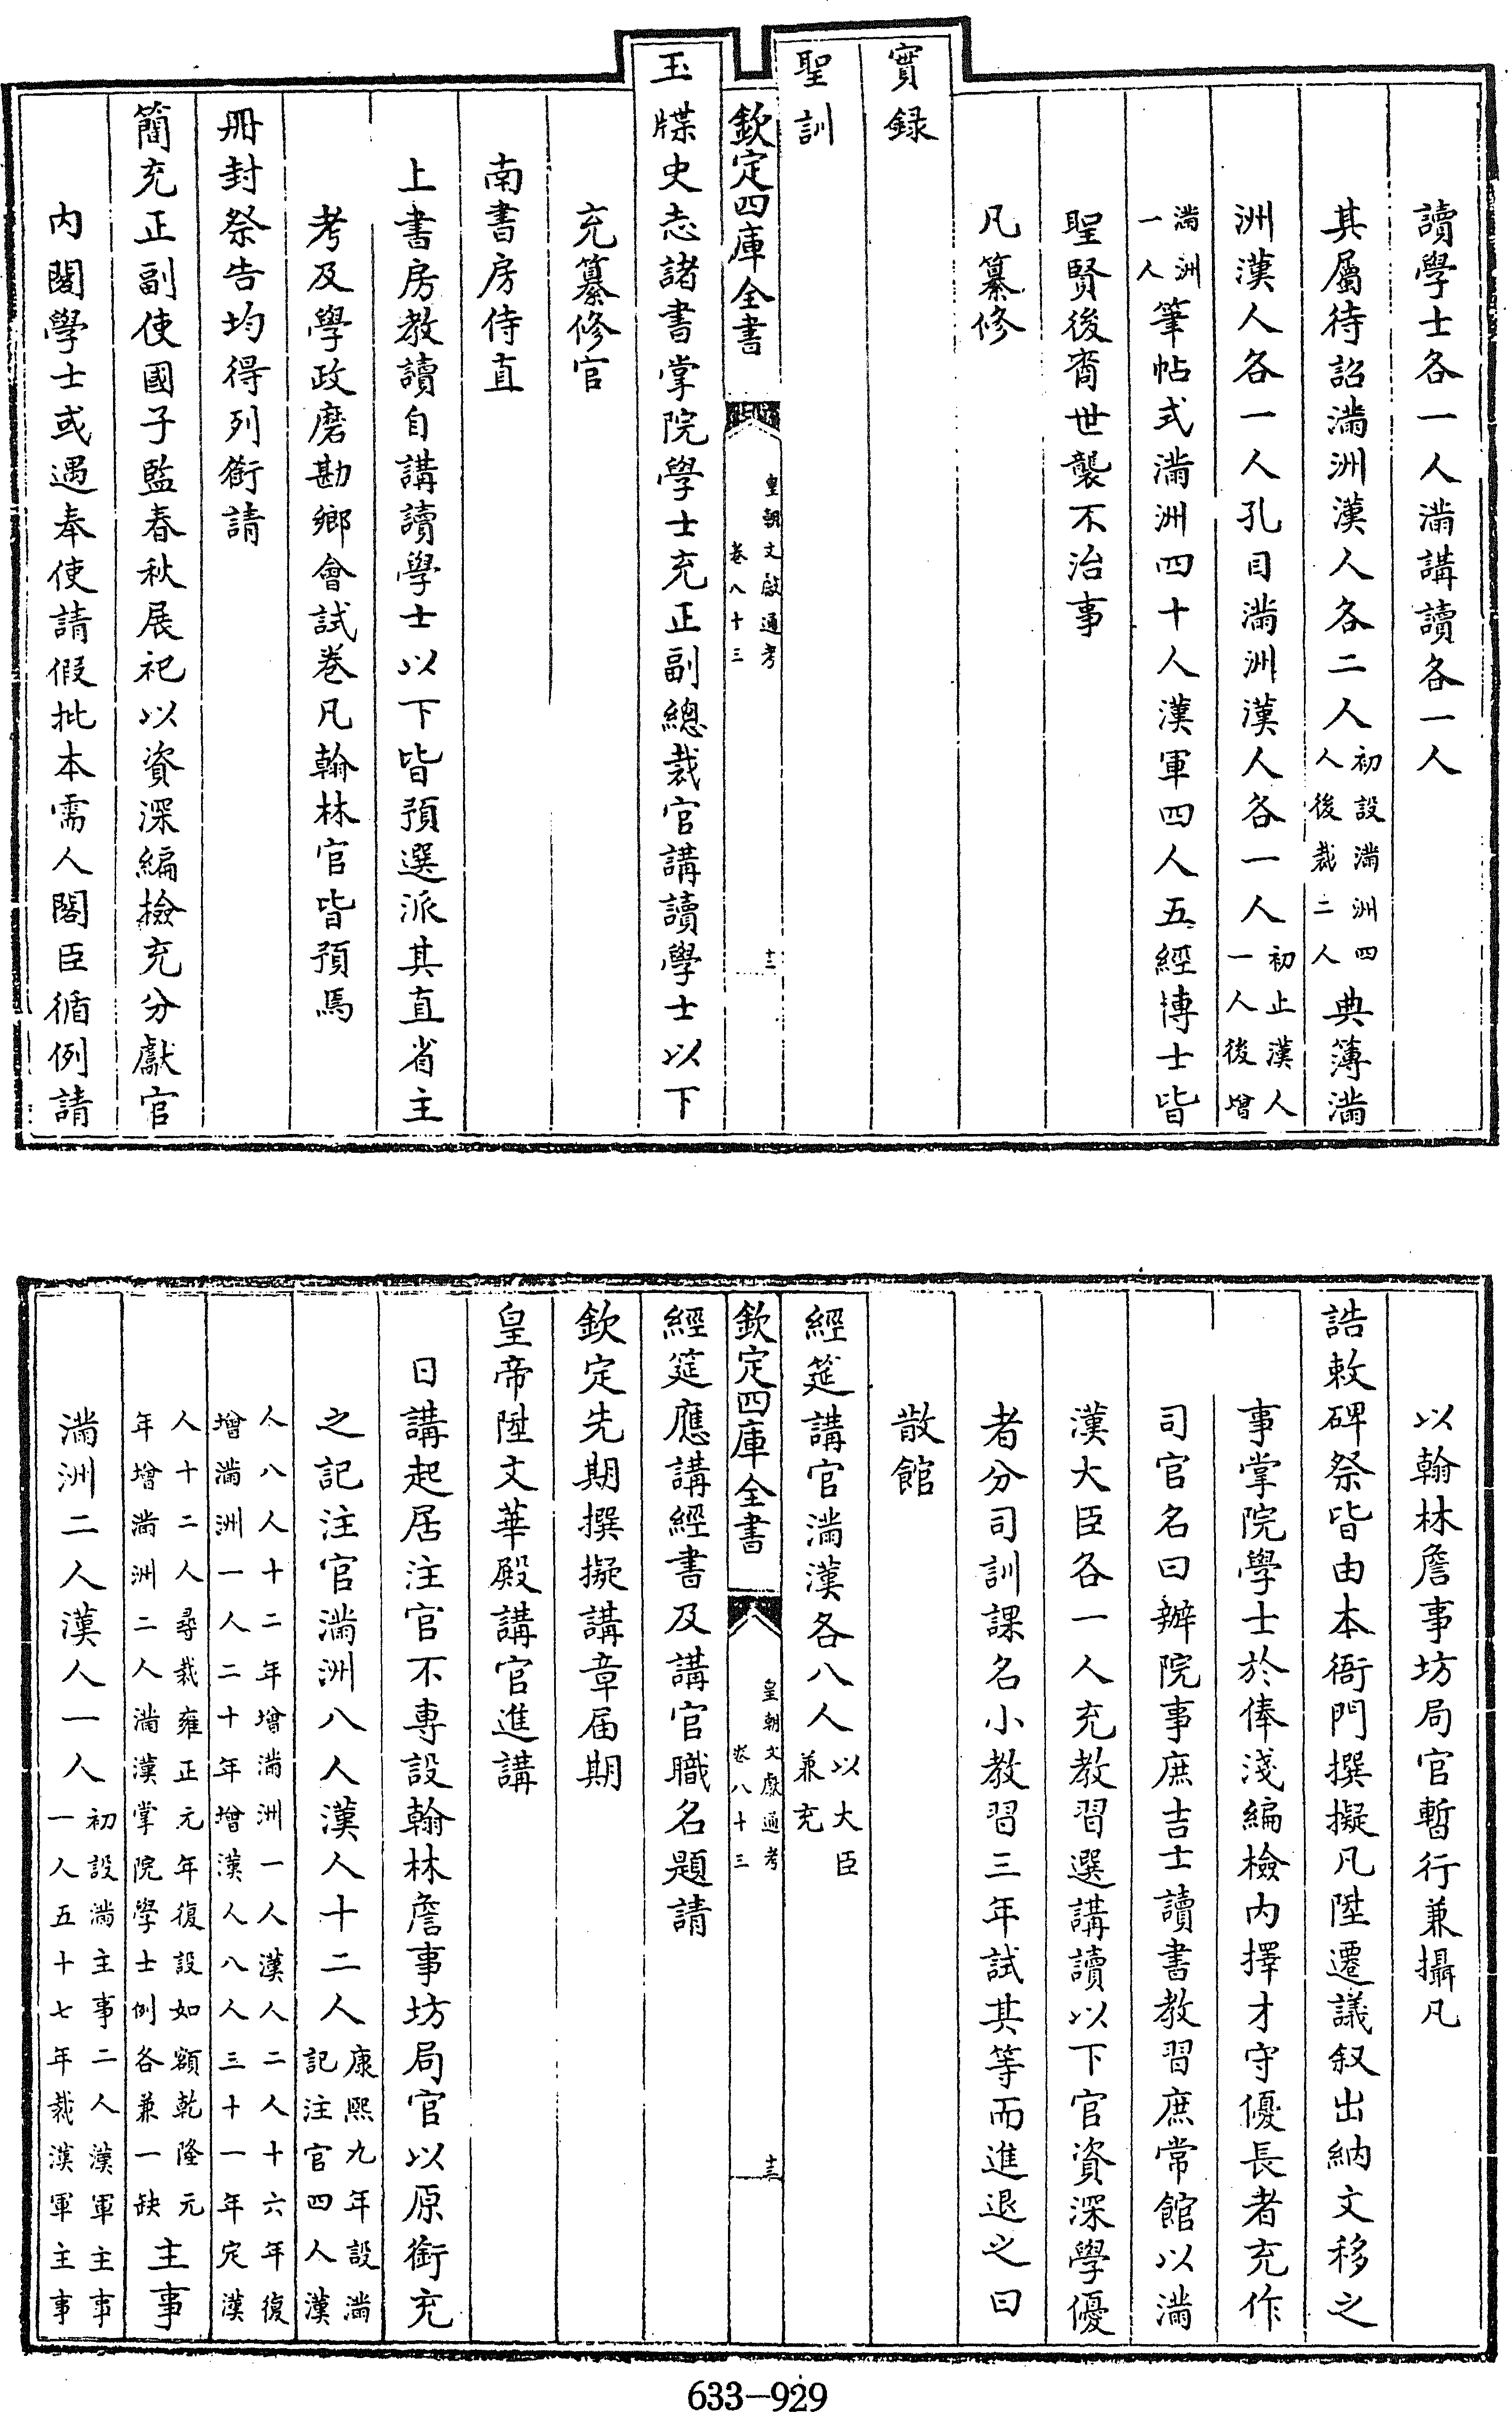 讀學士各一人滿講讀各一人
其屬待詔滿洲漢人各二人初設滿洲四人後裁二人典簿滿
洲漢人各一人孔目滿洲漢人各一人初止漢人一人後增
滿洲一人筆帖式滿洲四十人漢軍四人五經博士皆
聖賢後裔世襲不治事
凡纂修
實録
聖訓
欽定四庫全書
皇朝文獻通考
卷八十三
十三
玉牒史志諸書掌院學士充正副總裁官講讀學士以下
充纂修官
南書房侍直
上書房教讀自講讀學士以下皆預選派其直省主
考及學政磨勘鄉會試卷凡翰林官皆預焉
冊封祭告均得列銜請
簡充正副使國子監春秋展祀以資深編撿充分獻官
内閣學士或遇奉使請假批本需人閣臣循例請
以翰林詹事坊局官暫行兼攝凡
誥敕碑祭皆由本衙門撰擬凡陞遷議叙出納文移之
事掌院學士於俸淺編檢内擇才守優長者充作
司官名曰辦院事庶吉士讀書教習庶常館以滿
漢大臣各一人充教習選講讀以下官資深學優
者分司訓課名小教習三年試其等而進退之曰
散館
經筵講官滿漢各八人以大臣兼充
欽定四庫全書
皇朝文獻通考
卷八十三
十三
經筵應講經書及講官職名題請
欽定先期撰擬講章届期
皇帝陞文華殿講官進講
日講起居注官不專設翰林詹事坊局官以原銜充
之記注官滿洲八人漢人十二人康熙九年設滿記注官四人漢
人八人十二年增滿洲一人漢人二人十六年復增滿洲一人二十年增漢人八人三十一年定漢
人十二人尋裁雍正元年復設如額乾隆元年增滿洲二人滿漢掌院學士例各兼一缺主事
滿洲二人漢人一人初設滿主事二人漢軍主事一人五十七年裁漢軍主事
633-929